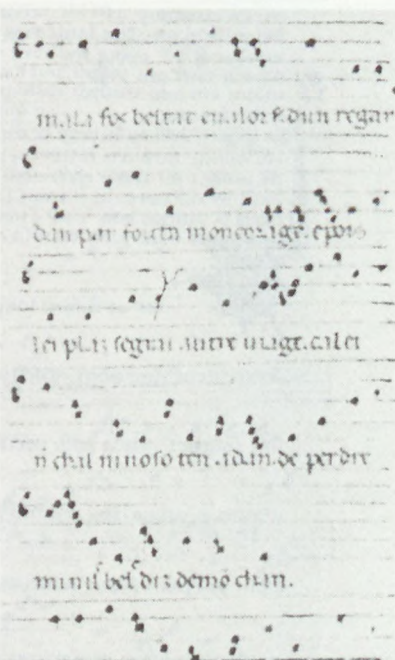 mala fos beltat e valor s. dun regar
dan par fon en mon coragge. e pois
lei plaz segrai autre viage. ca lei
n chal ni no so ten a dan. de perdre
mi nils bels diz de mo chan.